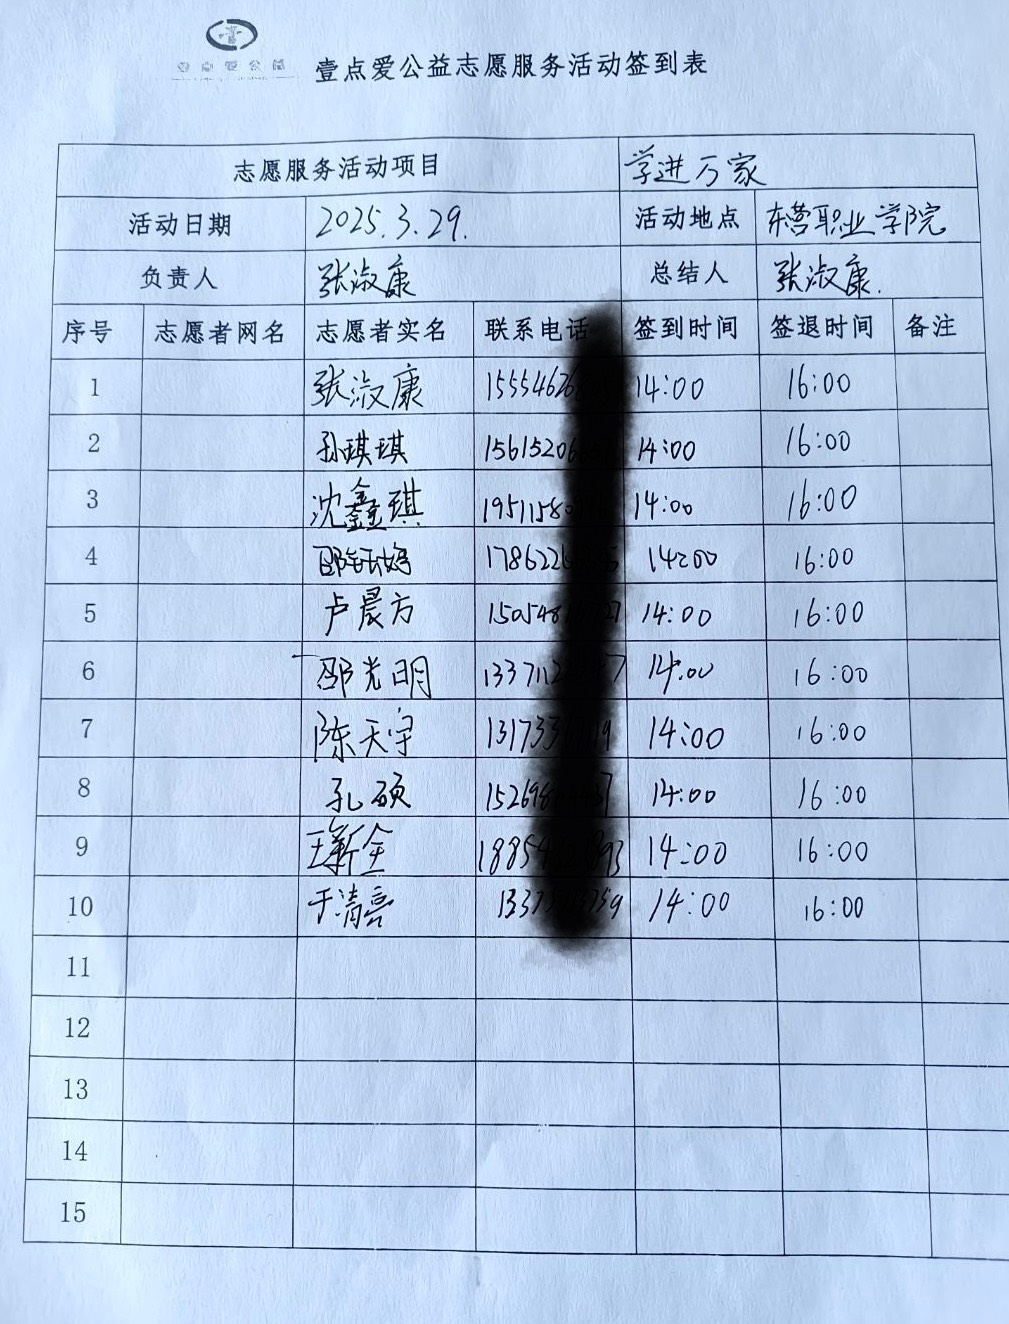 壹点爱公益
壹点爱公益志愿服务活动签到表
志愿服务活动项目 学进万家
活动日期 2025.3.29. 活动地点 东营职业学院
负责人 张淑康 总结人 张淑康.
序号 志愿者网名 志愿者实名 联系电话 签到时间 签退时间 备注
1 张淑康 1555462 14:00 16:00
2 孙琪琪 15615206 14:00 16:00
3 沈鑫琪 1951158 14:00 16:00
4 1786226 14:00 16:00
5 卢晨方 150548 14:00 16:00
6 邵光明 133711 14:00 16:00
7 陈天宇 131733 14:00 16:00
8 孔硕 15269 14:00 16:00
9 王新全 1885 14:00 16:00
10 于清亮 1337 14:00 16:00
11
12
13
14
15